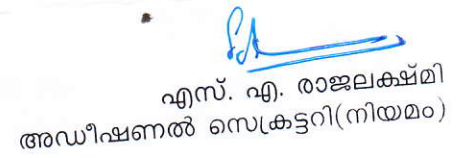 എസ്. എ. രാജലക്ഷ്മി
അഡീഷണൽ സെക്രട്ടറി(നിയമം)